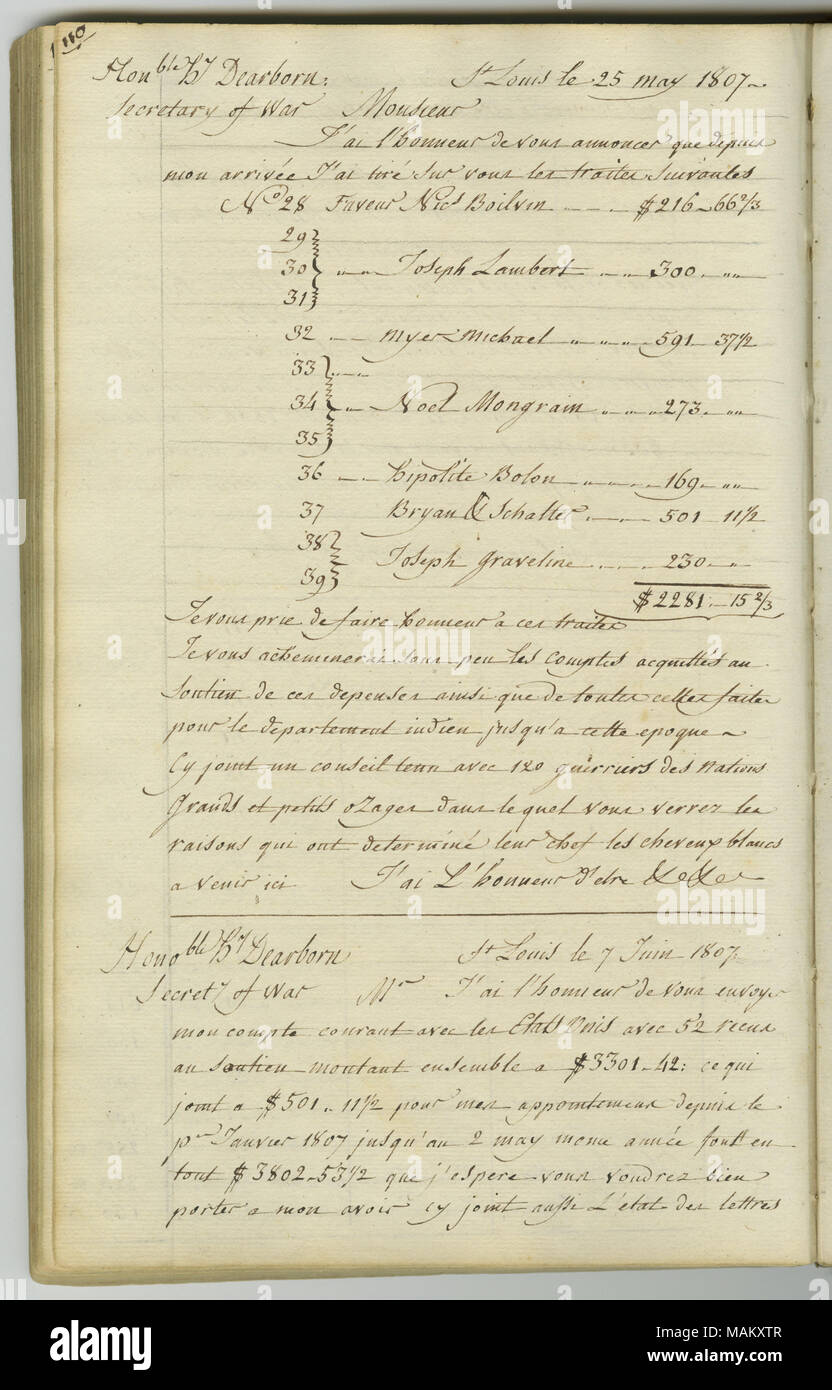 110
Hon^ble H^y Dearborn: St Louis le 25 may 1807~
Secretary of War Monsieur
J'ai l'honneur de vous annoncer que depuis
mon arrivée J'ai tiré sur vous les traites suivantes
N^o 28 Faveur Nic^s Boilvin $216 - 66 2/3
29
30 " " Joseph Lambert " " 300 - " "
31
32 " Myer Michael " " " " 591 37 1/2
33 " "
34 " " Noel Mongrain " " 273 - " "
35
36 Hipolite Bolon 169 - " "
37 Bryan & Schatter 501 11 1/2
38
39 Joseph Graveline 230 - "
$2281 - 15 2/3
Je vous prie de faire honneur a ces traites
Je vous acheminerai sous peu les comptes acquittés au
soutien de ces depenses ainsi que de toutes celles faites
pour le departement indien jusqu'a cette epoque ~
Cy joint un conseil tenu avec 120 guerriers des Nations
Grands et petits ozages dans lequel vous verrez les
raisons qui ont determiné leur chef les cheveux blancs
a venir ici J'ai L'honneur d'etre &c &c
Hono^ble H^y Dearborn St Louis le 7 Juin 1807.
Secret^y of War M^r J'ai l'honneur de vous envoyer
mon compte courant avec les Etats Unis avec 52 recus
au soutien montant ensemble a $3301 - 42: ce qui
joint a $501 .. 11 1/2 pour mes appointemens depuis le
p^er Janvier 1807 jusqu'au 2 may meme année font en
tout $3802 - 53 1/2 que j'espere vous voudrez bien
porter a mon avoir cy joint aussi L'etat des lettres
alamy
a
Image ID: MAKXTR
www.alamy.com